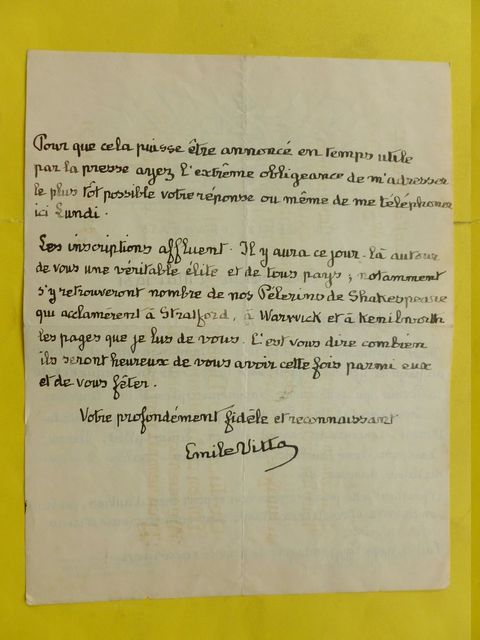 Pour que cela puisse être annoncé en temps utile
par la presse ayez l'extrême obligeance de m'adresser
le plus tôt possible votre réponse ou même de me téléphoner
ici Lundi.
Les inscriptions affluent. Il y aura ce jour-là autour
de vous une véritable élite et de tous pays ; notamment
s'y retrouveront nombre de nos Pélerins de Shakespeare
qui acclamèrent à Stratford, à Warwick et à Kenilworth
les pages que je lus de vous. C'est vous dire combien
ils seront heureux de vous avoir cette fois parmi eux
et de vous fêter.
Votre profondément fidèle et reconnaissant
Emile Vitta